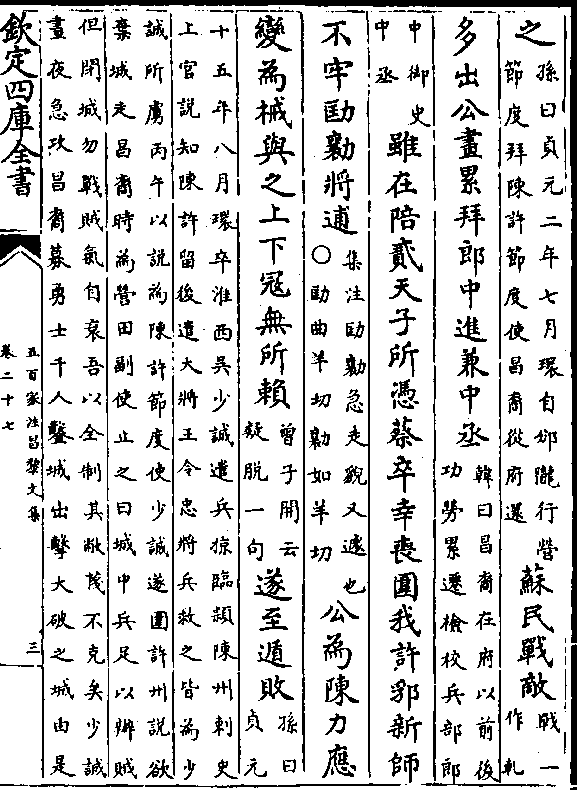 之孫曰貞元二年七月環自邠隴行營
節度拜陳許節度使昌裔從府遷
蘇民戰敵戰一
作軋
多出公畫累拜郎中進兼中丞韓曰昌裔在府以前後
功勞累遷檢校兵部郎
中御史
中丞
雖在陪貳天子所憑蔡卒幸喪圍我許郛新師
不牢劻勷將逋○集注劻勷急走貌又遽也
劻曲羊切勷如羊切
公為陳力應
變為械與之上下冦無所賴曾子開云
疑脫一句
遂至遁敗孫曰
貞元
十五年八月環卒淮西吳少誠遣兵掠臨潁陳州刺史
上官説知陳許留後遣大將王令忠將兵救之皆為少
誠所虜丙午以説為陳許節度使少誠遂圍許州説欲
棄城走昌裔時為營田副使止之曰城中兵足以辦賊
但閉城勿戰賊氣自衰吾以全制其敝蔑不克矣少誠
晝夜急攻昌裔募勇士千人鑿城出擊大破之城由是
欽定四庫全書
五百家注昌黎文集
卷二十七
三